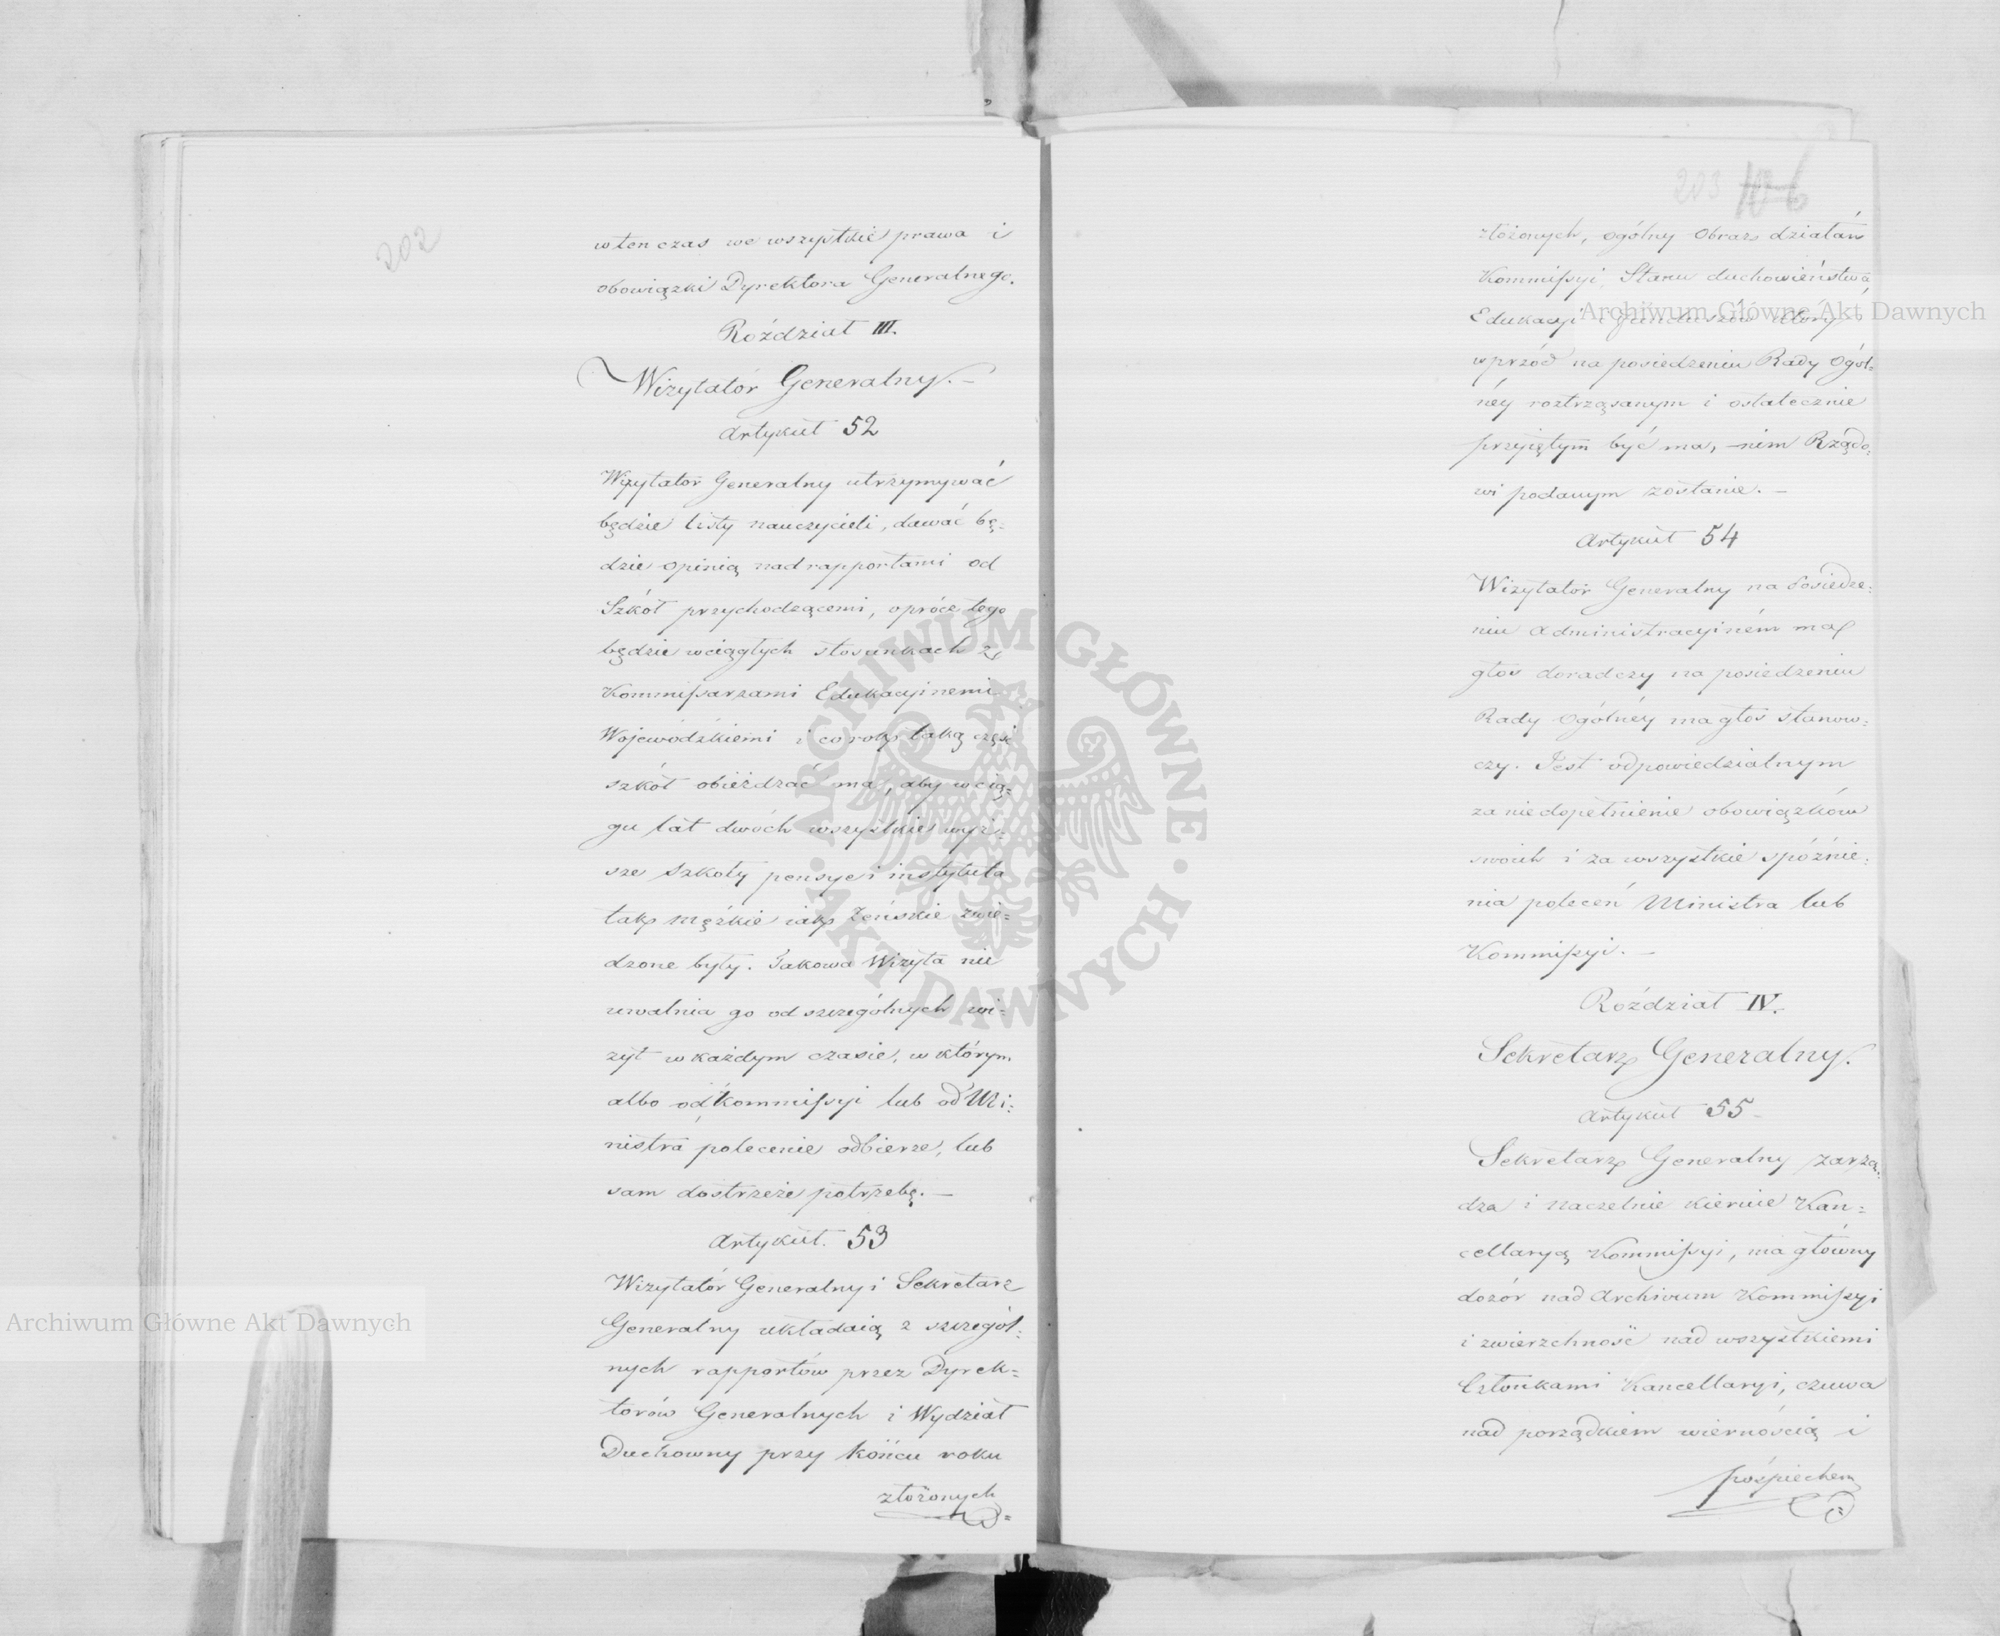 202
wtenczas we wszystkie prawa i
obowiązki Dyrektora Generalnego.
Roździał III.
Wizytator Generalny. –
Artykuł 52
Wizytator Generalny utrzymywać
będzie listy nauczycieli, dawać bę=
dzie opinią nad rapportami od
Szkół przychodzącemi, oprócz tego
będzie w ciągłych stosunkach z
Kommissarzami Edukacyinemi
Wojewódzkiemi i co rok taką część
szkół obieżdzać ma, aby w cią=
gu lat dwóch wszystkie wyż=
sze szkoły pensye i instytuta
tak męzkie iak żeńskie zwie=
dzone były. Takowa Wizyta nie
uwalnia go od szczególnych wi=
zyt w każdym czasie, w którym
albo od Kommissyi lub od Mi=
nistra polecenie odbierze, lub
sam dostrzeże potrzebę. –
Artykuł. 53
Wizytator Generalny i Sekretarz
Generalny układaią z szczegól=
nych rapportów przez Dyrek=
torów Generalnych i Wydział
Duchowny przy końcu roku
złożonych
203 106
złożonych, ogólny Obraz działań
Kommissyi Stanu duchowieństwa
Edukacyi i funduszów który
wprzód na posiedzeniu Rady Ogól=
néy roztrząsanym i ostatecznie
przyiętym być ma, nim Rządo=
wi podanym zostanie. –
Artykuł 54
Wizytator Generalny na Posiedze=
niu administracyiném ma
głos doradczy na posiedzeniu
Rady Ogólnéy ma głos stanow=
czy. Jest odpowiedzialnym
za niedopełnienie obowiązków
swoich i za wszystkie spóźnie=
nia poleceń Ministra lub
Kommissyi. –
Roździał IV.
Sekretarz Generalny.
Artykuł 55 –
Sekretarz Generalny zarzą=
dza i naczelnie kieruie Kan=
cellaryą Kommissyi, ma główny
dozór nad Archivum Kommissyi
i zwierzchność nad wszystkiemi
Członkami Kancellaryi, czuwa
nad porządkiem wiernością i
pośpiechem
Archiwum Główne Akt Dawnych
Archiwum Główne Akt Dawnych
ARCHIWUM GŁÓWNE · AKT DAWNYCH ·